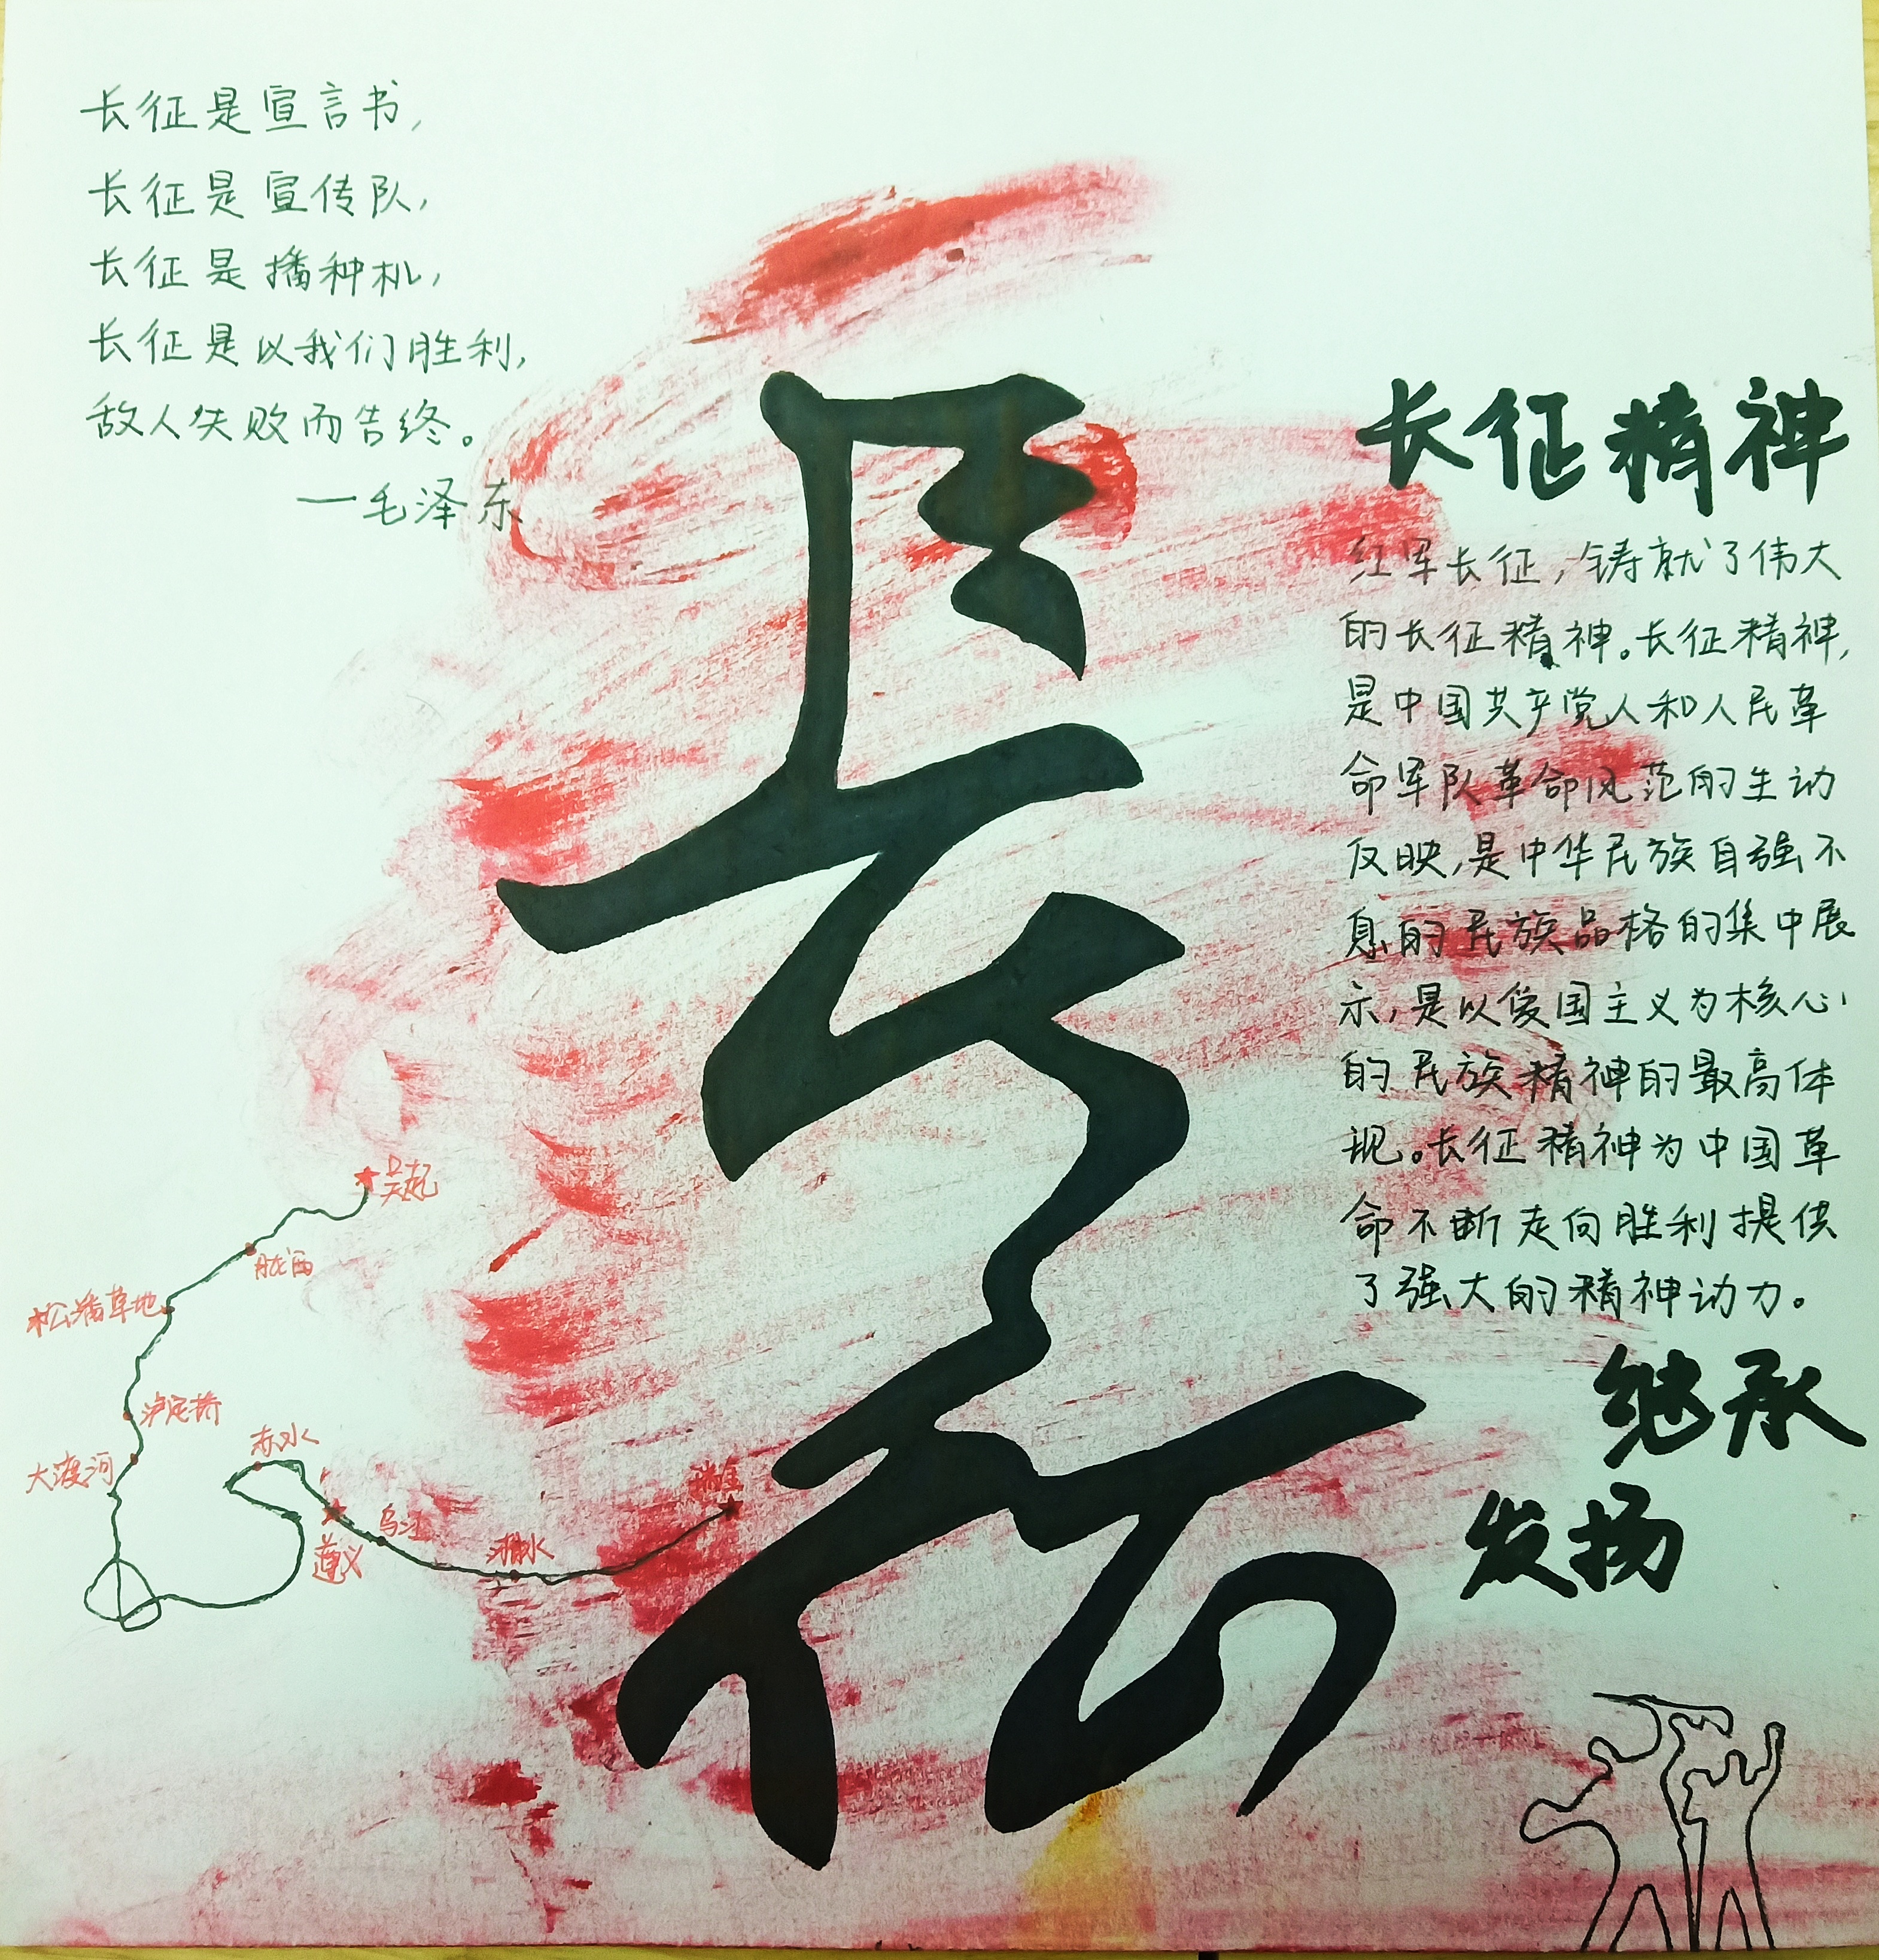 长征是宣言书，
长征是宣传队，
长征是播种机，
长征是以我们胜利，
敌人失败而告终。
一毛泽东
長征
长征精神
红军长征，铸就了伟大
的长征精神。长征精神，
是中国共产党人和人民革
命军队革命风范的生动
反映，是中华民族自强不
息的民族品格的集中展
示，是以爱国主义为核心
的民族精神的最高体
现。长征精神为中国革
命不断走向胜利提供
了强大的精神动力。
继承
发扬
吴起
陇西
松潘草地
泸定桥
大渡河
赤水
遵义
乌江
湘水
瑞金